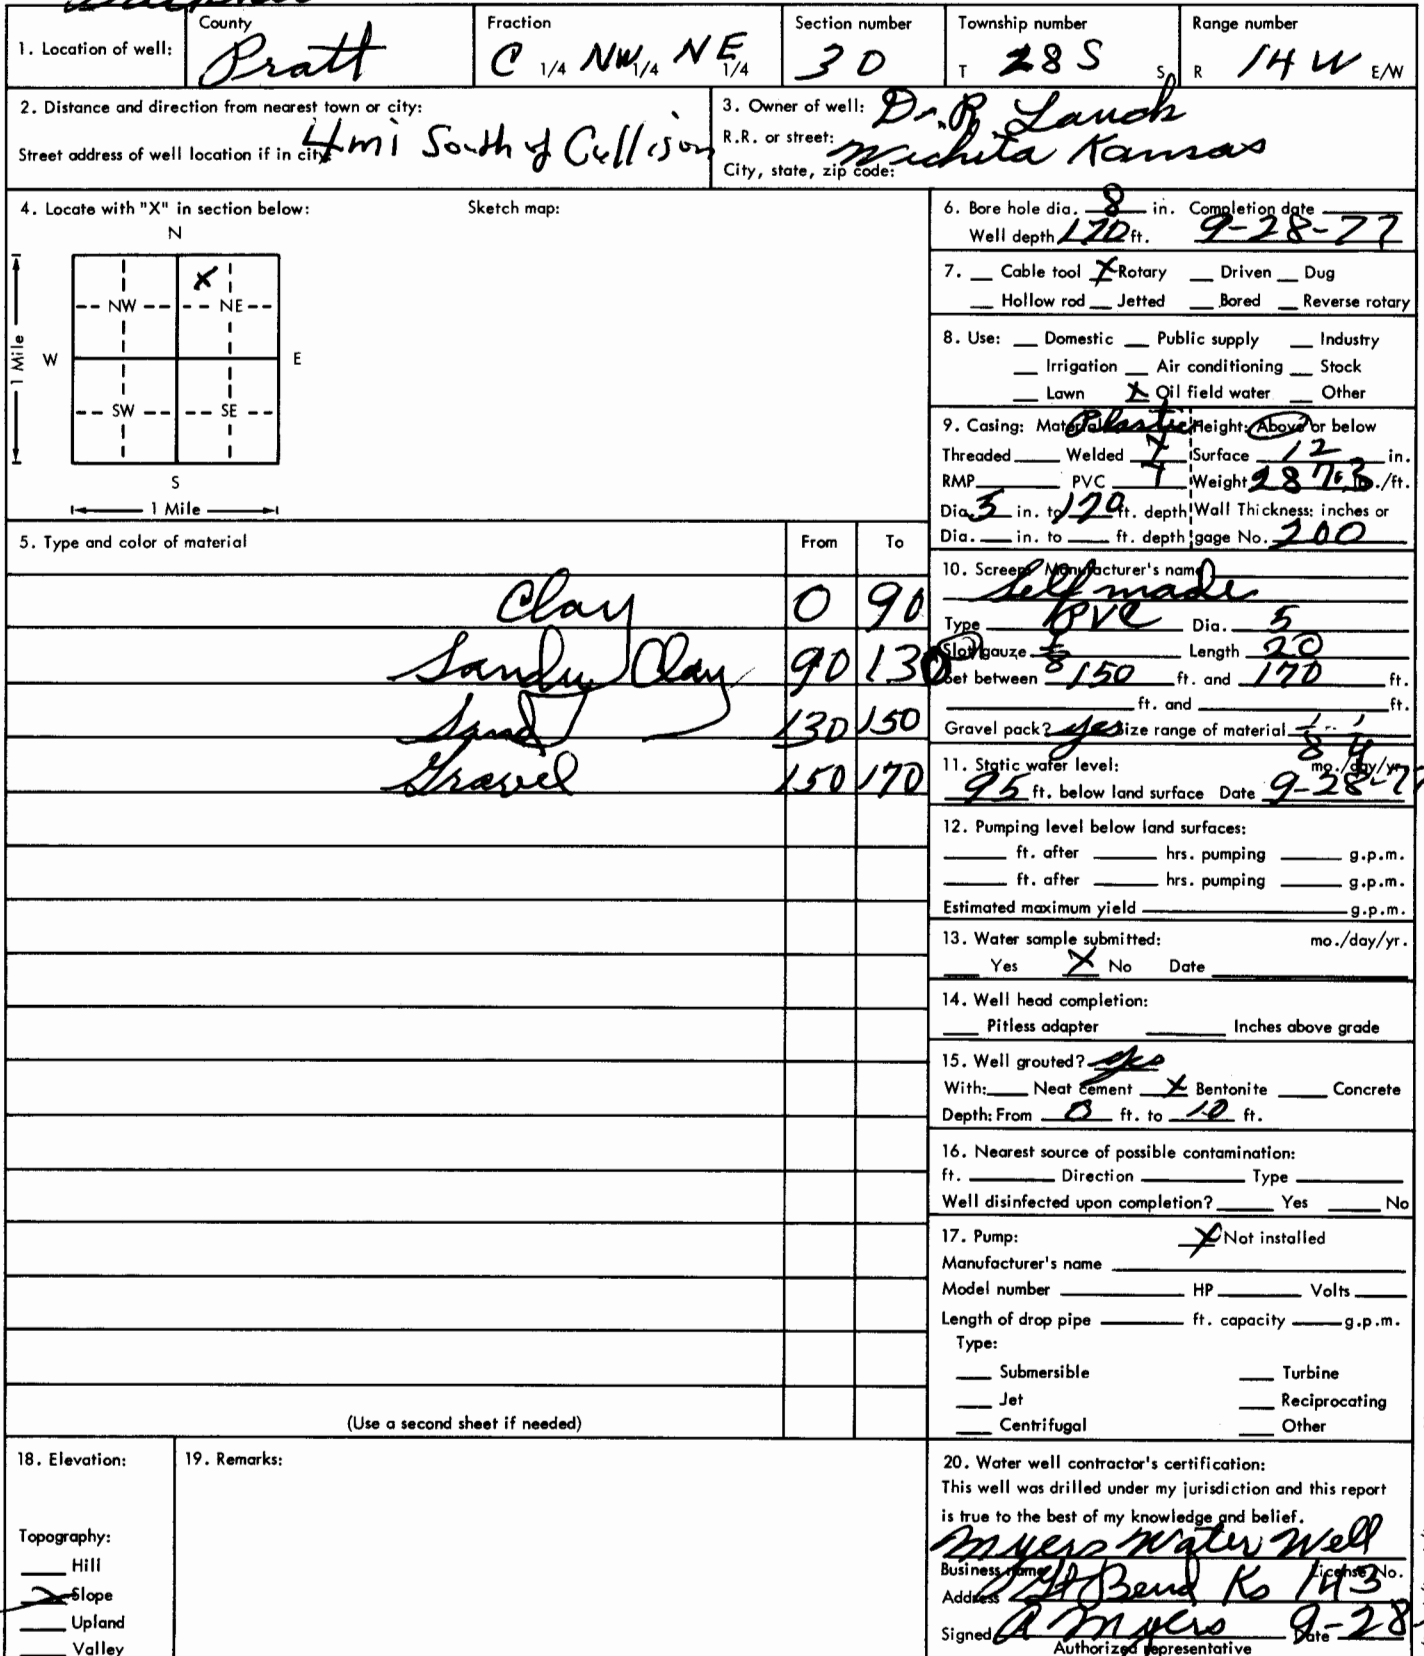 County Fraction Section number Township number Range number
1. Location of well: Pratt C 1/4 NW 1/4 NE 1/4 30 T 28 S S R 14 W E/W
2. Distance and direction from nearest town or city:
4 mi South of Cullison
Street address of well location if in city:
3. Owner of well: Dr. R
R.R. or street:
Wichita Kansas
City, state, zip code:
4. Locate with "X" in section below: Sketch map:
N
X
NW NE
W E
1 Mile
SW SE
S
1 Mile
5. Type and color of material From To
Clay 0 90
Sandy Clay 90 130
Sand 130 150
Gravel 150 170
(Use a second sheet if needed)
6. Bore hole dia. 8 in. Completion date
Well depth 170 ft. 9-28-77
7. Cable tool X Rotary Driven Dug
Hollow rod Jetted Bored Reverse rotary
8. Use: Domestic Public supply Industry
Irrigation Air conditioning Stock
Lawn X Oil field water Other
9. Casing: Material Plastic Height: Above or below
Threaded Welded X Surface 12 in.
RMP PVC X Weight ./ft.
Dia. 5 in. to 170 ft. depth Wall Thickness: inches or
Dia. in. to ft. depth gage No. 200
10. Screen: Manufacturer's name
Self made
Type PVC Dia. 5
Slot/gauze 1/8 Length 20
Set between 150 ft. and 170 ft.
ft. and ft.
Gravel pack? yes Size range of material 1/8 - 1/4
11. Static water level: mo./day/yr.
95 ft. below land surface Date 9-28-77
12. Pumping level below land surfaces:
ft. after hrs. pumping g.p.m.
ft. after hrs. pumping g.p.m.
Estimated maximum yield g.p.m.
13. Water sample submitted: mo./day/yr.
Yes X No Date
14. Well head completion:
Pitless adapter Inches above grade
15. Well grouted? yes
With: Neat cement X Bentonite Concrete
Depth: From 0 ft. to 10 ft.
16. Nearest source of possible contamination:
ft. Direction Type
Well disinfected upon completion? Yes No
17. Pump: X Not installed
Manufacturer's name
Model number HP Volts
Length of drop pipe ft. capacity g.p.m.
Type:
Submersible Turbine
Jet Reciprocating
Centrifugal Other
18. Elevation:
Topography:
Hill
X Slope
Upland
Valley
19. Remarks:
20. Water well contractor's certification:
This well was drilled under my jurisdiction and this report
is true to the best of my knowledge and belief.
Myers Water Well
Business name License No.
Address Gt Bend Ks 143
Signed R Myers Date 9-28-
Authorized representative